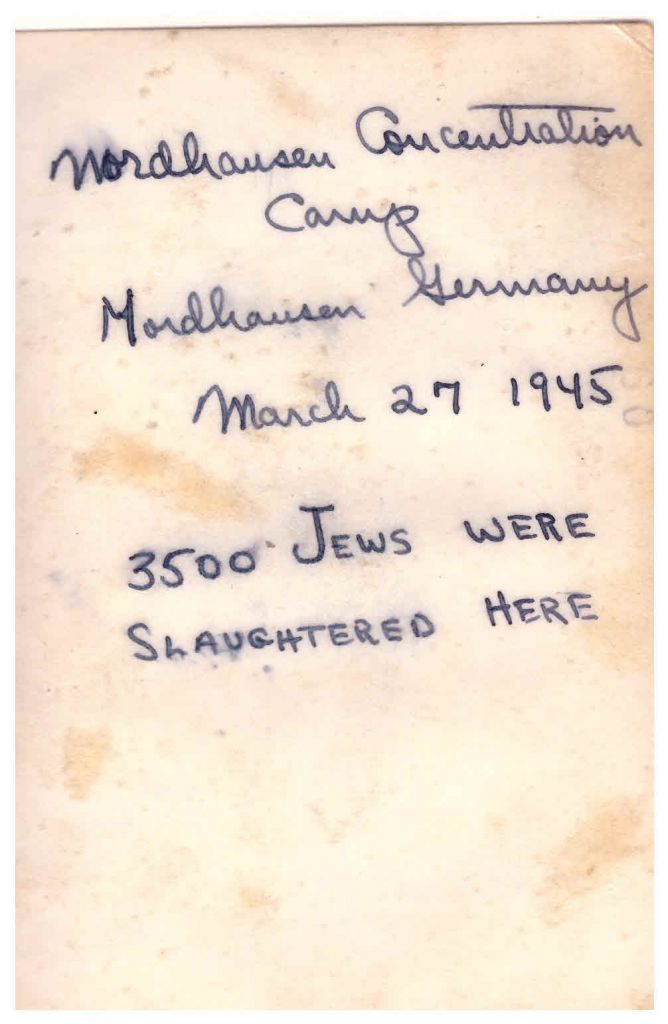 Nordhausen Concentration
Camp
Nordhausen Germany
March 27 1945
3500 JEWS WERE
SLAUGHTERED HERE